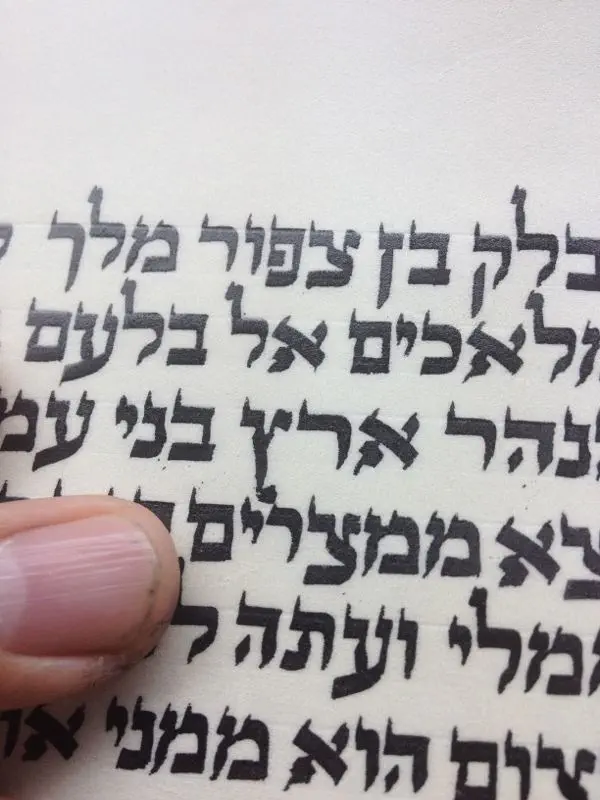 בלק בן צפור מלך
מלאכים אל בלעם
נהר ארץ בני עמ
צא ממצרים
ממלי ועתה
צום הוא ממני או